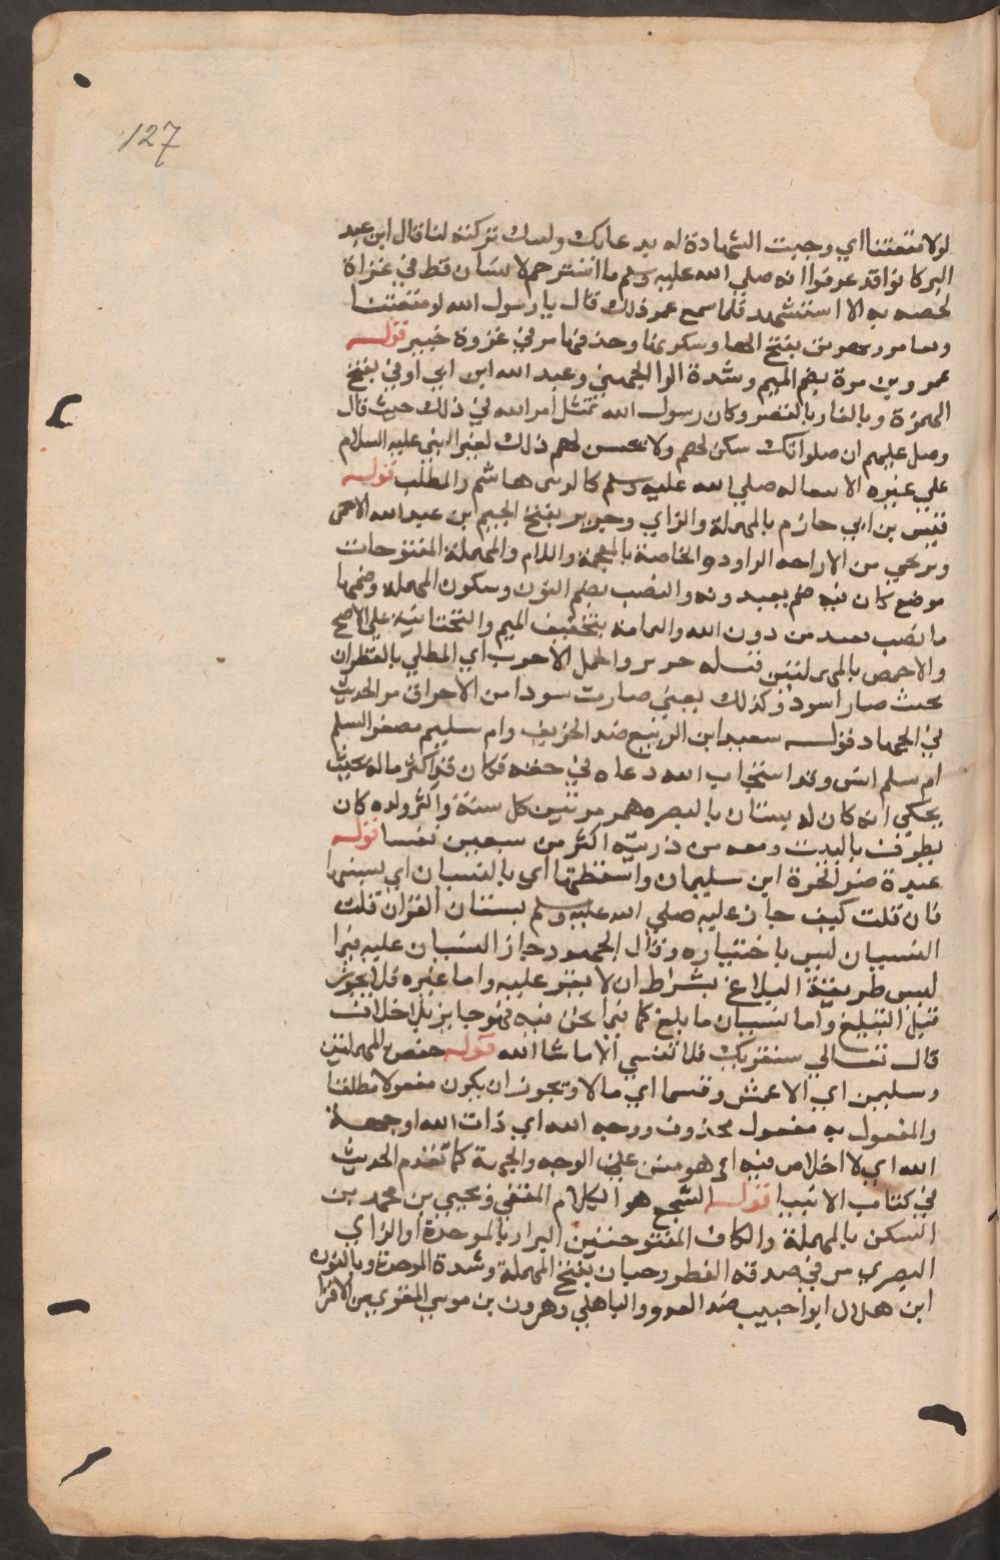 127
لولا متعتنا اي وجبت الشهادة له بدعائك وليتك تركته لنا قال ابن عبد
البر كانوا قد عرفوا انه صلي الله عليه وسلم ما استرحم لانسان قط في غزاة
يخصه به الا استشهد فلما سمع عمر ذلك قال يا رسول الله لو متعتنا
بفتح الها وسكونها وحذفها مر في غزوة خيبر قوله
عمرو بن مرة بضم الميم وشدة الرا الجهني وعبد الله ابن ابي اوفي بفتح
الهمزة وبالفا وبالقصر وكان رسول الله يمتثل امر الله في ذلك حيث قال
وصل عليهم ان صلواتك سكن لهم ولا يحسن لهم ذلك لغير النبي عليه السلام
علي غيره الا صلي الله عليه وسلم كال بني هاشم والمطلب قوله
قيس بن ابي حازم بالمهملة والزاي وجرير بفتح الجيم ابن عبد الله الاحمسي
وتريحي من الاراحة الراء وذو الخلصة بالمعجمة واللام والمهملة المفتوحات
موضع كان فيه صنم يعبدونه والنصب بضم النون وسكون المهملة وضمها
ما نصب يعبد من دون الله واليمانية بتخفيف الميم والتحتانية علي الاصح
والاحمس بالمهملتين قبيلة جرير والجمل الاجرب اي المطلي بالقطران
بحيث صار اسود وكذلك يعني صارت سودا من الاحراق مر الحديث
في الجهاد قوله سعيد ابن الربيع ضد الخريف وام سليم مصغر السلم
ام سلم انس وقد استجاب الله دعاه في حقه فكان اكثر ماله بحيث
يحكي انه كان له بستان بالبصره يثمر مرتين كل سنة واكثر ولده كان
يطوف بالبيت ومعه من ذريته اكثر من سبعين نفسا قوله
عبدة ضد الحرة ابن سليمان واسقطتها اي بالنسيان اي نسيتها
فان قلت كيف جاز عليه صلي الله عليه وسلم نسيان القران قلت
النسيان ليس باختياره وقال الجمهور جاز النسيان عليه فيما
ليس طريقة البلاغ بشرط ان لا يقر عليه واما غيره فلا يجوز
قبل التبليغ واما نسيان ما بلغ كما فيما نحن فيه فهو جايز بلا خلاف
قال تعالي سنقريك فلا تنسي الا ما شا الله قوله حفص بالمهملتين
وسليمن اي الاعمش وقسما اي مالا ويجوز ان يكون مفعولا مطلقا
والمفعول به مفعول محذوف ووجه الله اي ذات الله او جهة
الله اي لا اخلاص فيه علي الوجه والجهة كما تقدم الحديث
في كتاب الانبيا قوله السجع هو الكلام المقفي ويحيي بن محمد بن
السكن بالمهملة والكاف المفتوحتين البزار بالموحدة او الزاي
البصري مر في صدقة الفطر وحبان بفتح المهملة وشدة الموحدة وبالنون
ابن هلال ابو حبيب ضد العدو والباهلي وهرون بن موسي المقري من الاقرا